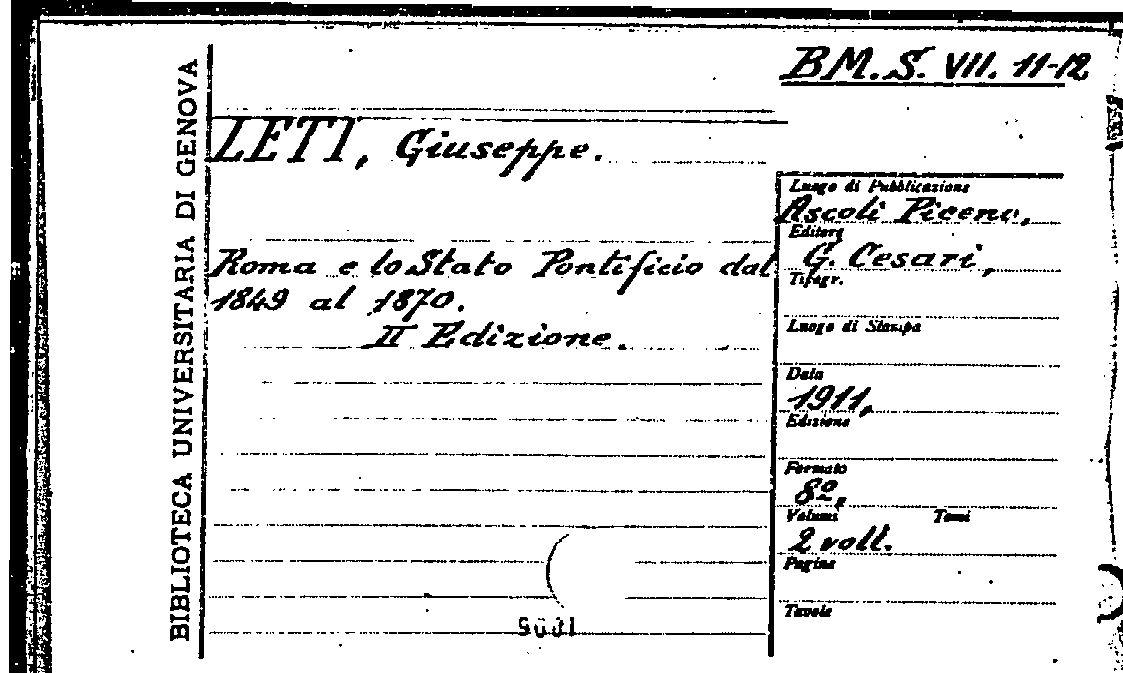 BIBLIOTECA UNIVERSITARIA DI GENOVA
BM. S. VII. 11-12
LETI, Giuseppe.
Roma e lo Stato Pontificio dal
1849 al 1870.
II Edizione.
Luogo di Pubblicazione
Ascoli Piceno,
Editore
G. Cesari,
Tipogr.
Luogo di Stampa
Data
1911,
Edizione
Formato
8º,
Volumi Tomi
2 voll.
Pagine
Tavole